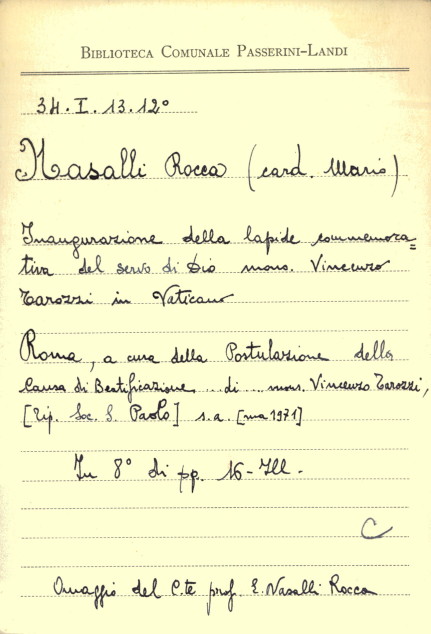 BIBLIOTECA COMUNALE PASSERINI-LANDI
34. I. 13. 12°
Nasalli Rocca (card. Mario)
Inaugurazione della lapide commemora=
tiva del servo di Dio mons. Vincenzo
Tarozzi in Vaticano
Roma, a cura della Postulazione della
Causa di Beatificazione di mons. Vincenzo Tarozzi,
[Tip. Soc. S. Paolo] s.a. [ma 1971]
In 8° di pp. 16 - Ill.
C
Omaggio del C.te prof. E. Nasalli Rocca